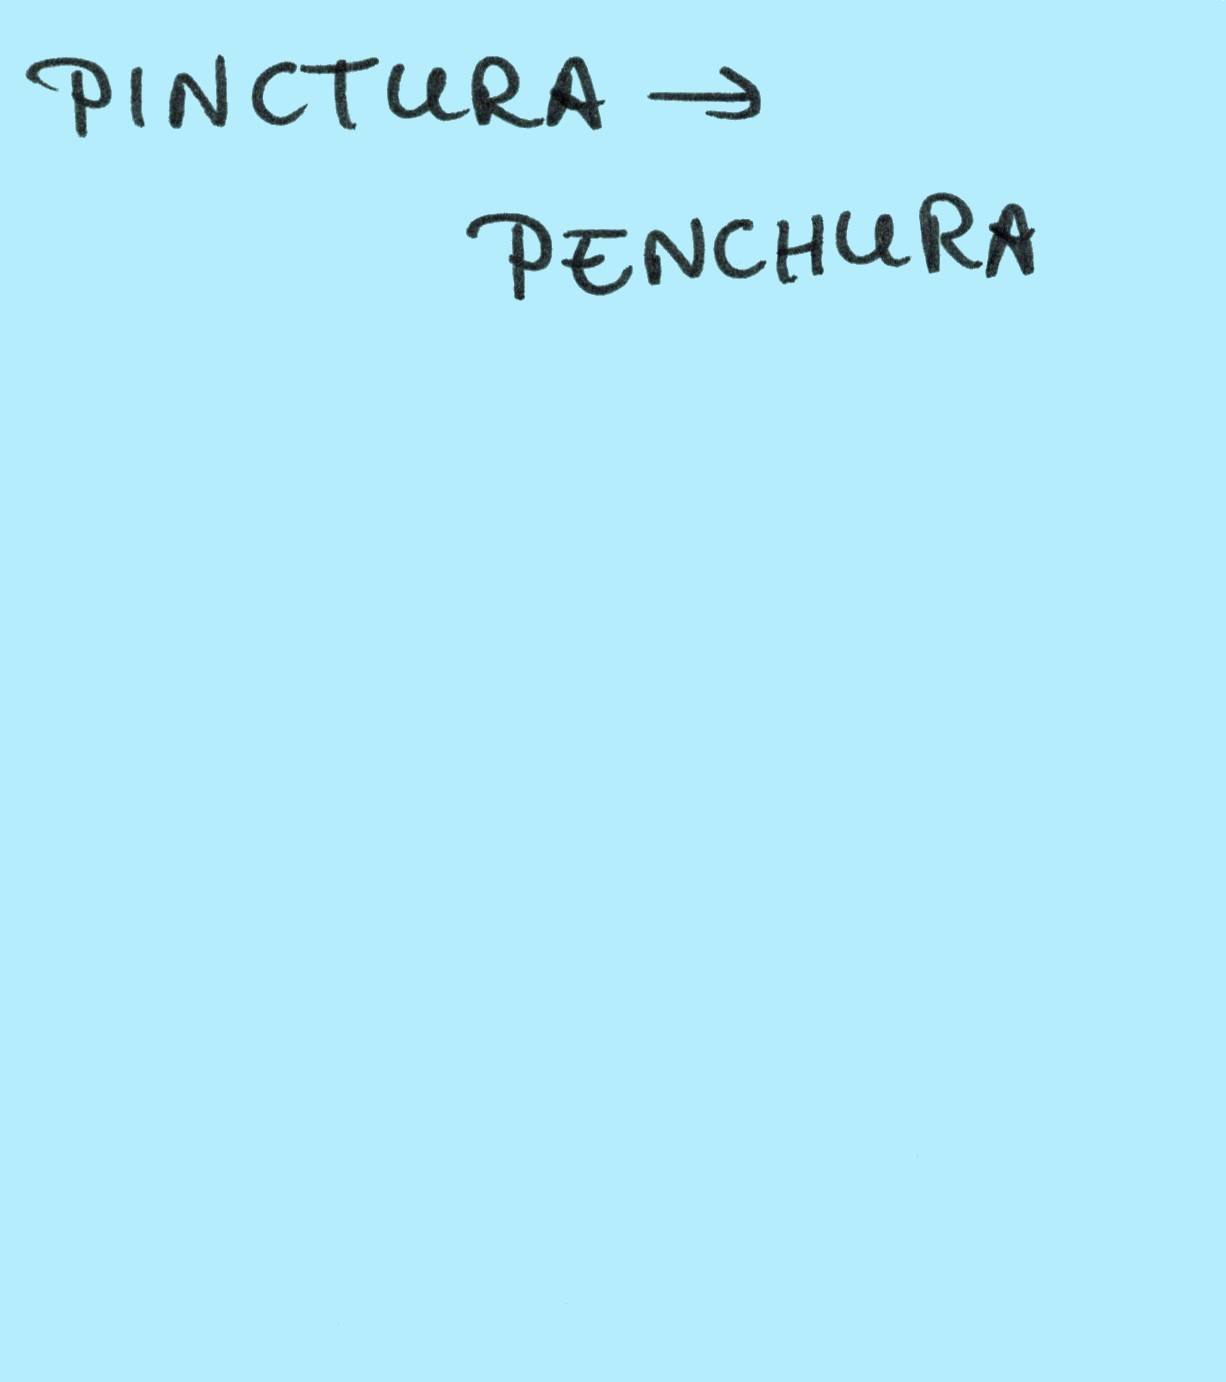 PINCTURA →
PENCHURA